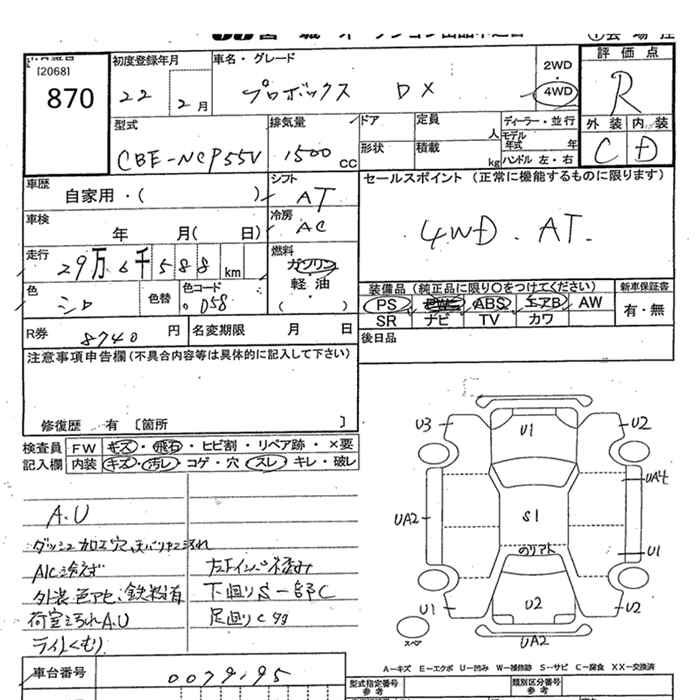 [2068]
870
初度登録年月
22 2月
車名・グレード
プロボックス DX
2WD
・
4WD
評価点
R
外装 内装
C D
型式
CBE-NCP55V
排気量
1500 CC
ドア
定員
人
形状
積載
kg
ディーラー・並行
モデル
年式 年
ハンドル 左・右
車歴
自家用・( )
シフト
AT
セールスポイント (正常に機能するものに限ります)
4WD. AT.
車検
年 月( 日)
冷房
AC
走行
29万6千588 km
燃料
ガソリン
軽・油
( )
色
シロ
色替
色コード
058
装備品 (純正品に限り○をつけてください)
PS PW ABS エアB AW
SR ナビ TV カワ
新車保証書
有・無
R券
8740 円
名変期限 月 日
後日品
注意事項申告欄(不具合内容等は具体的に記入して下さい)
修復歴 有 [箇所 ]
検査員 FW キズ・飛石・ヒビ割・リペア跡・×要
記入欄 内装 キズ・汚レ・コゲ・穴・スレ・キレ・破レ
A.U
ダッシュ加工穴
A/C冷えず
外装色アセ、鉄粉有
荷室汚れA.U
ライトくもり
下回りS一部C
足回りC
U3 U1 U2
UA4
UA2 S1
のリアト U1
U1 U2 U2
スペア UA2
車台番号
0079195
A-キズ E-エクボ U-凹み W-補修跡 S-サビ C-腐食 XX-交換済
型式指定番号
参考
類別区分番号
参考